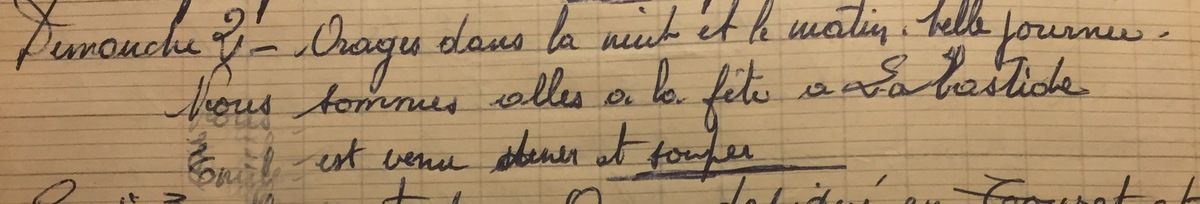 Dimanche 2 - Orages dans la nuit et le matin. belle journee.
Nous sommes alles a la fête a La bastide
Emil est venu diner et souper